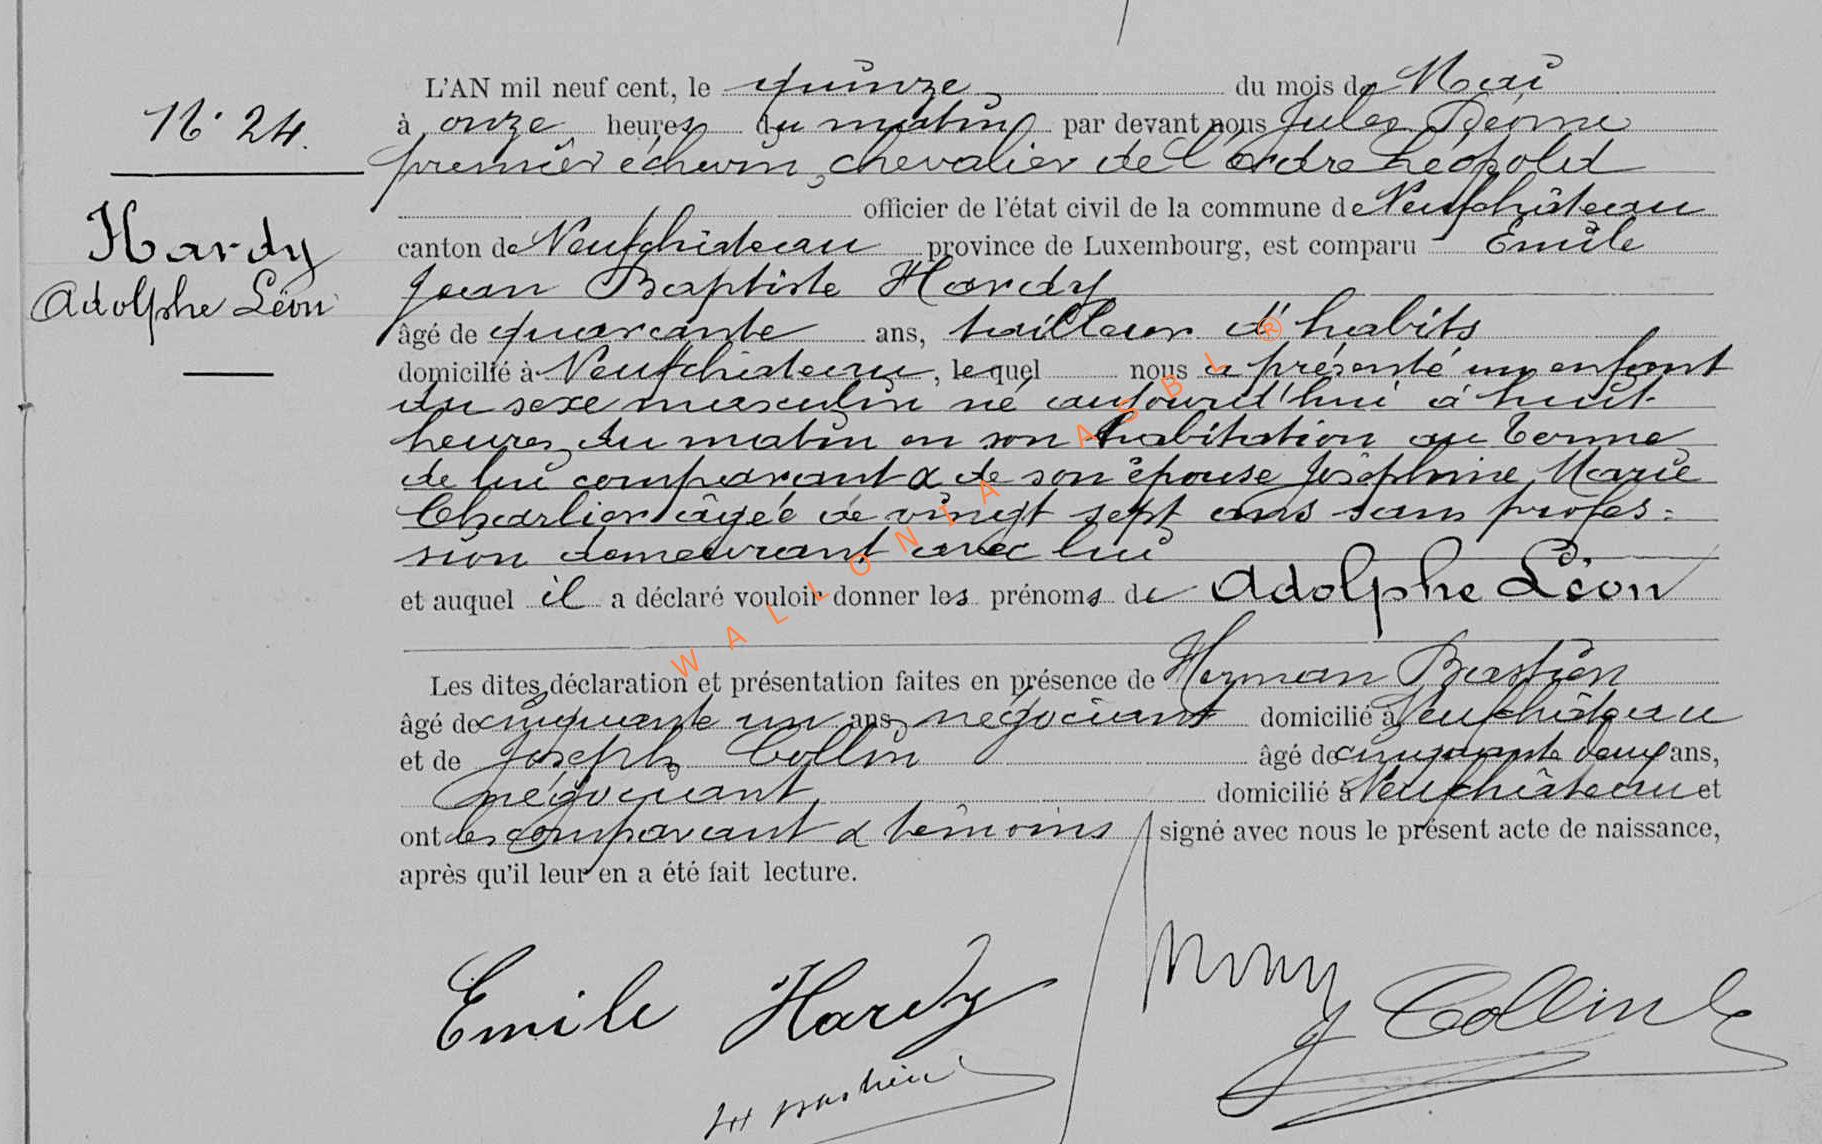 L'AN mil neuf cent, le quinze du mois de Mai
N° 24. à onze heures du matin par devant nous Jules
premier échevin, chevalier de l'ordre Léopold
officier de l'état civil de la commune de Neufchâteau
Hardy canton de Neufchâteau province de Luxembourg, est comparu Emile
Adolphe Léon Jean Baptiste Hardy
âgé de quarante ans, tailleur d'habits
domicilié à Neufchâteau, lequel nous a présenté un enfant
du sexe masculin né aujourd'hui à huit
heures du matin en son habitation au Terme
de lui comparant & de son épouse Joséphine Marie
Charlier âgée de vingt sept ans sans profes=
sion demeurant avec lui
et auquel il a déclaré vouloir donner les prénoms de Adolphe Léon
Les dites déclaration et présentation faites en présence de Herman Bastien
âgé de cinquante un ans négociant domicilié à Neufchâteau
et de Joseph Collin âgé de cinquante deux ans,
négociant domicilié à Neufchâteau et
ont les comparant & témoins signé avec nous le présent acte de naissance,
après qu'il leur en a été fait lecture.
Emile Hardy
J Collin
H Bastien
WALLONIA ASBL ®